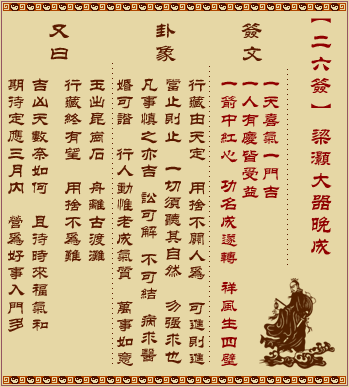 【二六簽】 梁灝大器晚成
簽文
一天喜氣一門吉
一人有慶皆受益
一箭中紅心 功名成遂轉 祥風生四壁
卦象
行藏由天定 用捨不願人爲 可進則進
當止則止 一切須聽其自然 勿強求也
凡事慎之亦吉 訟可解 不可結 病求醫
婚可諧 行人動惟老成氣質 萬事如意
又曰
玉出崑崗石 舟離古渡灘
行藏終有望 用捨不爲難
吉凶天數奈如何 且待時來福氣和
期待定應三月內 營爲好事入門多